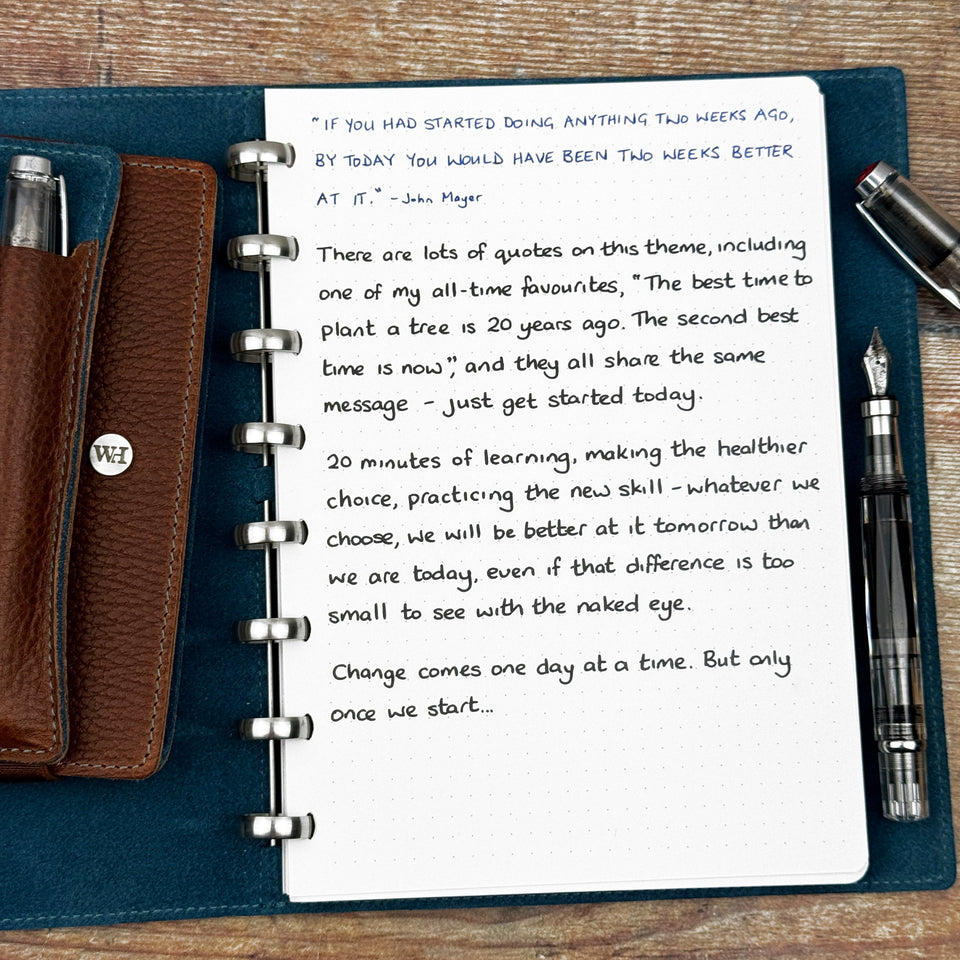 "IF YOU HAD STARTED DOING ANYTHING TWO WEEKS AGO,
BY TODAY YOU WOULD HAVE BEEN TWO WEEKS BETTER
AT IT." - John Mayer
There are lots of quotes on this theme, including
one of my all-time favourites, "The best time to
plant a tree is 20 years ago. The second best
time is now", and they all share the same
message - just get started today.
20 minutes of learning, making the healthier
choice, practicing the new skill - whatever we
choose, we will be better at it tomorrow than
we are today, even if that difference is too
small to see with the naked eye.
Change comes one day at a time. But only
once we start...
WH